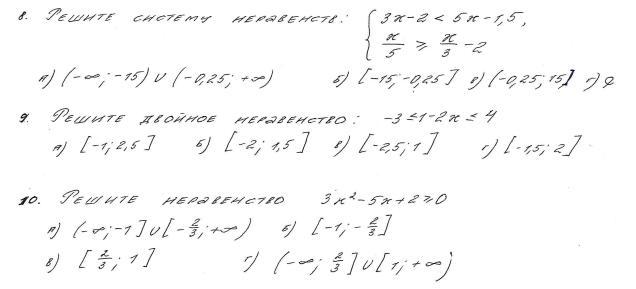 8. Решите систему неравенств: { 3x-2 < 5x-1,5,
x/5 ≥ x/3 -2
а) (-∞; -15) ∪ (-0,25; +∞) б) [-15; -0,25] в) (-0,25; 15] г) ∅
9. Решите двойное неравенство: -3 ≤ 1-2x ≤ 4
а) [-1; 2,5] б) [-2; 1,5] в) [-2,5; 1] г) [-1,5; 2]
10. Решите неравенство 3x²-5x+2 ≥ 0
а) (-∞; -1] ∪ [-2/3; +∞) б) [-1; -2/3]
в) [2/3; 1] г) (-∞; 2/3] ∪ [1; +∞)